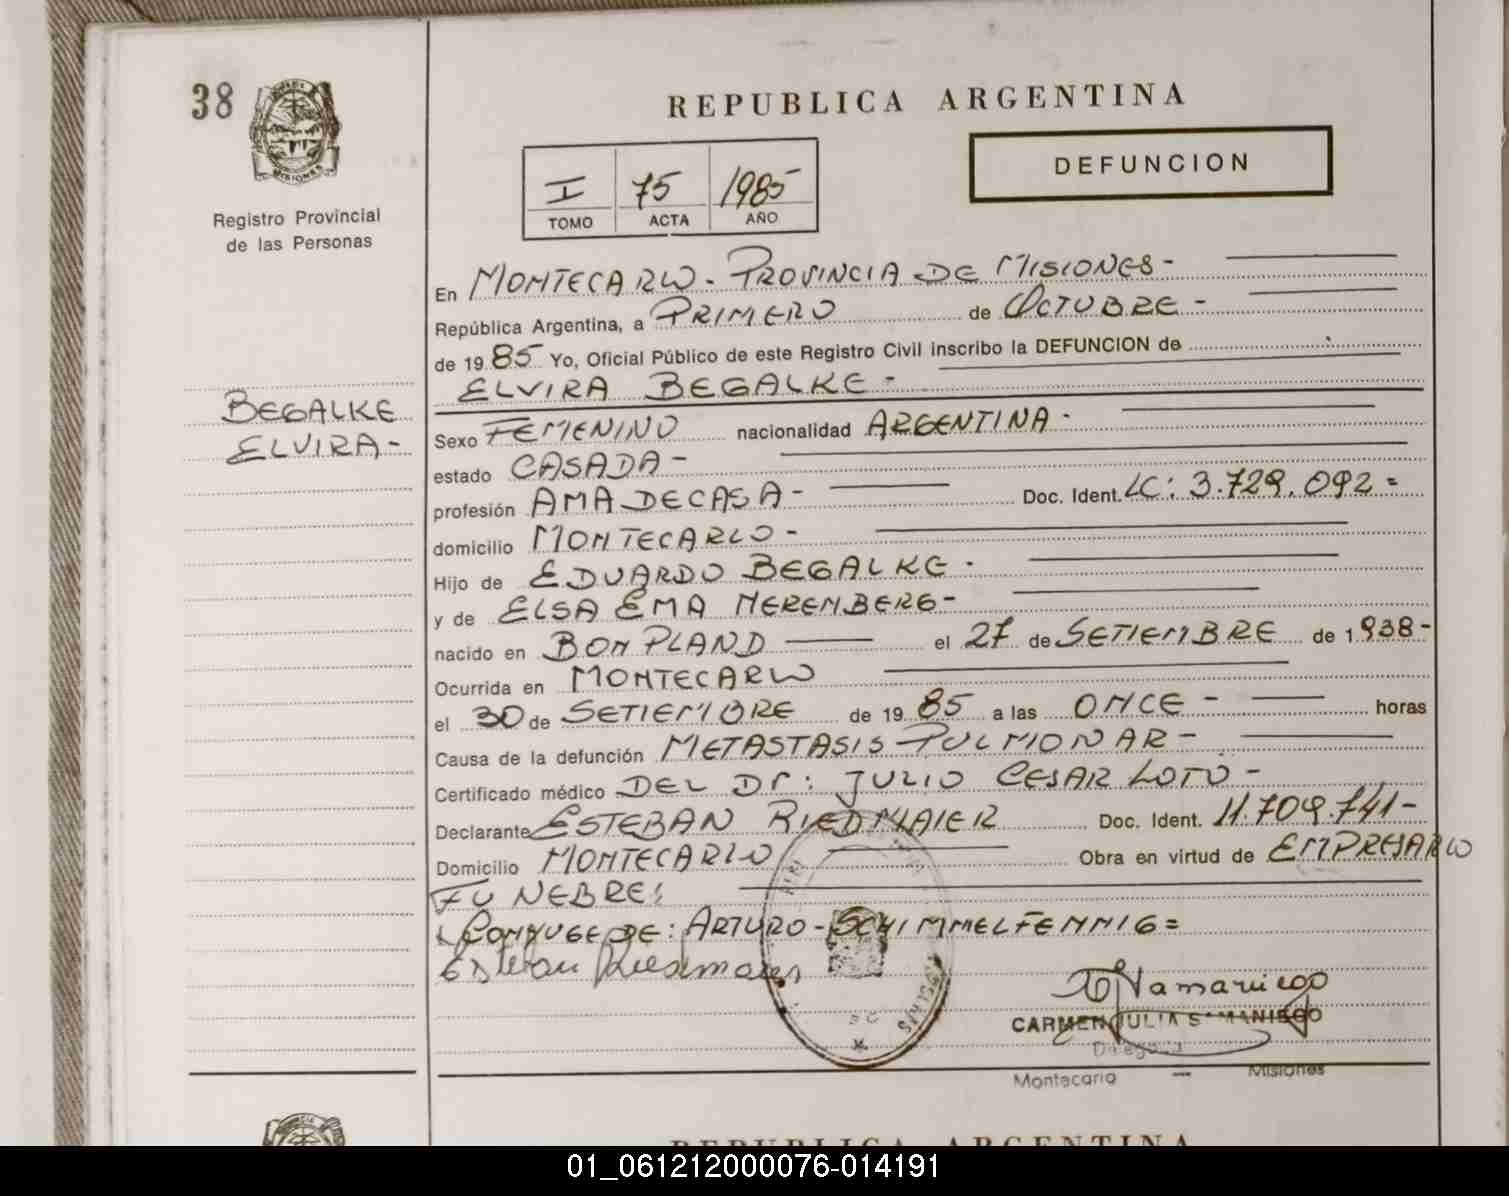 38
REPUBLICA ARGENTINA
DEFUNCION
I 75 1985
TOMO ACTA AÑO
Registro Provincial
de las Personas
En MONTECARLO - PROVINCIA DE MISIONES -
República Argentina, a PRIMERO de OCTUBRE -
de 19 85 Yo, Oficial Público de este Registro Civil inscribo la DEFUNCION de
ELVIRA BEGALKE -
BEGALKE
ELVIRA -
Sexo FEMENINO nacionalidad ARGENTINA -
estado CASADA -
profesión AMA DE CASA - Doc. Ident. LC: 3.729.092 =
domicilio MONTECARLO -
Hijo de EDUARDO BEGALKE -
y de ELSA EMA NEREMBERG -
nacido en BONPLAND el 27 de SETIEMBRE de 1.938 -
Ocurrida en MONTECARLO
el 30 de SETIEMBRE de 19 85 a las ONCE - horas
Causa de la defunción METASTASIS PULMONAR -
Certificado médico DEL Dr: JULIO CESAR LOTO -
Declarante ESTEBAN RIEDMAIER Doc. Ident. 11.709.741 -
Domicilio MONTECARLO Obra en virtud de EMPRESARIO
FUNEBRE:
CONYUGE DE: ARTURO - SCHIMMELFENNIG =
Esteban Riedmaier
CARMEN JULIA SAMANIEGO
Delegada
Montecarlo — Misiones
REPUBLICA ARGENTINA
01_061212000076-014191